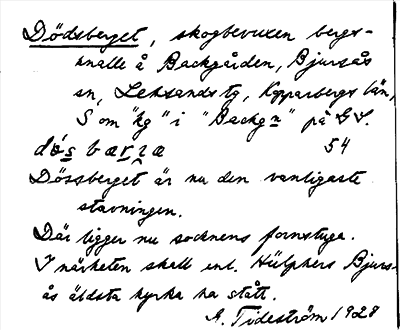 Dödsberget, skogbevuxen bergs-
knalle å Backgården, Bjursås
sn, Leksands tg, Kopparbergs län,
S om "kg" i "Backgn" på GS.
54
Dössberget är nu den vanligaste
stavningen.
Där ligger nu socknens fornstuga.
I närheten skall enl. Hülphers Bjurs-
ås äldsta kyrka ha stått.
A. Tideström 1928